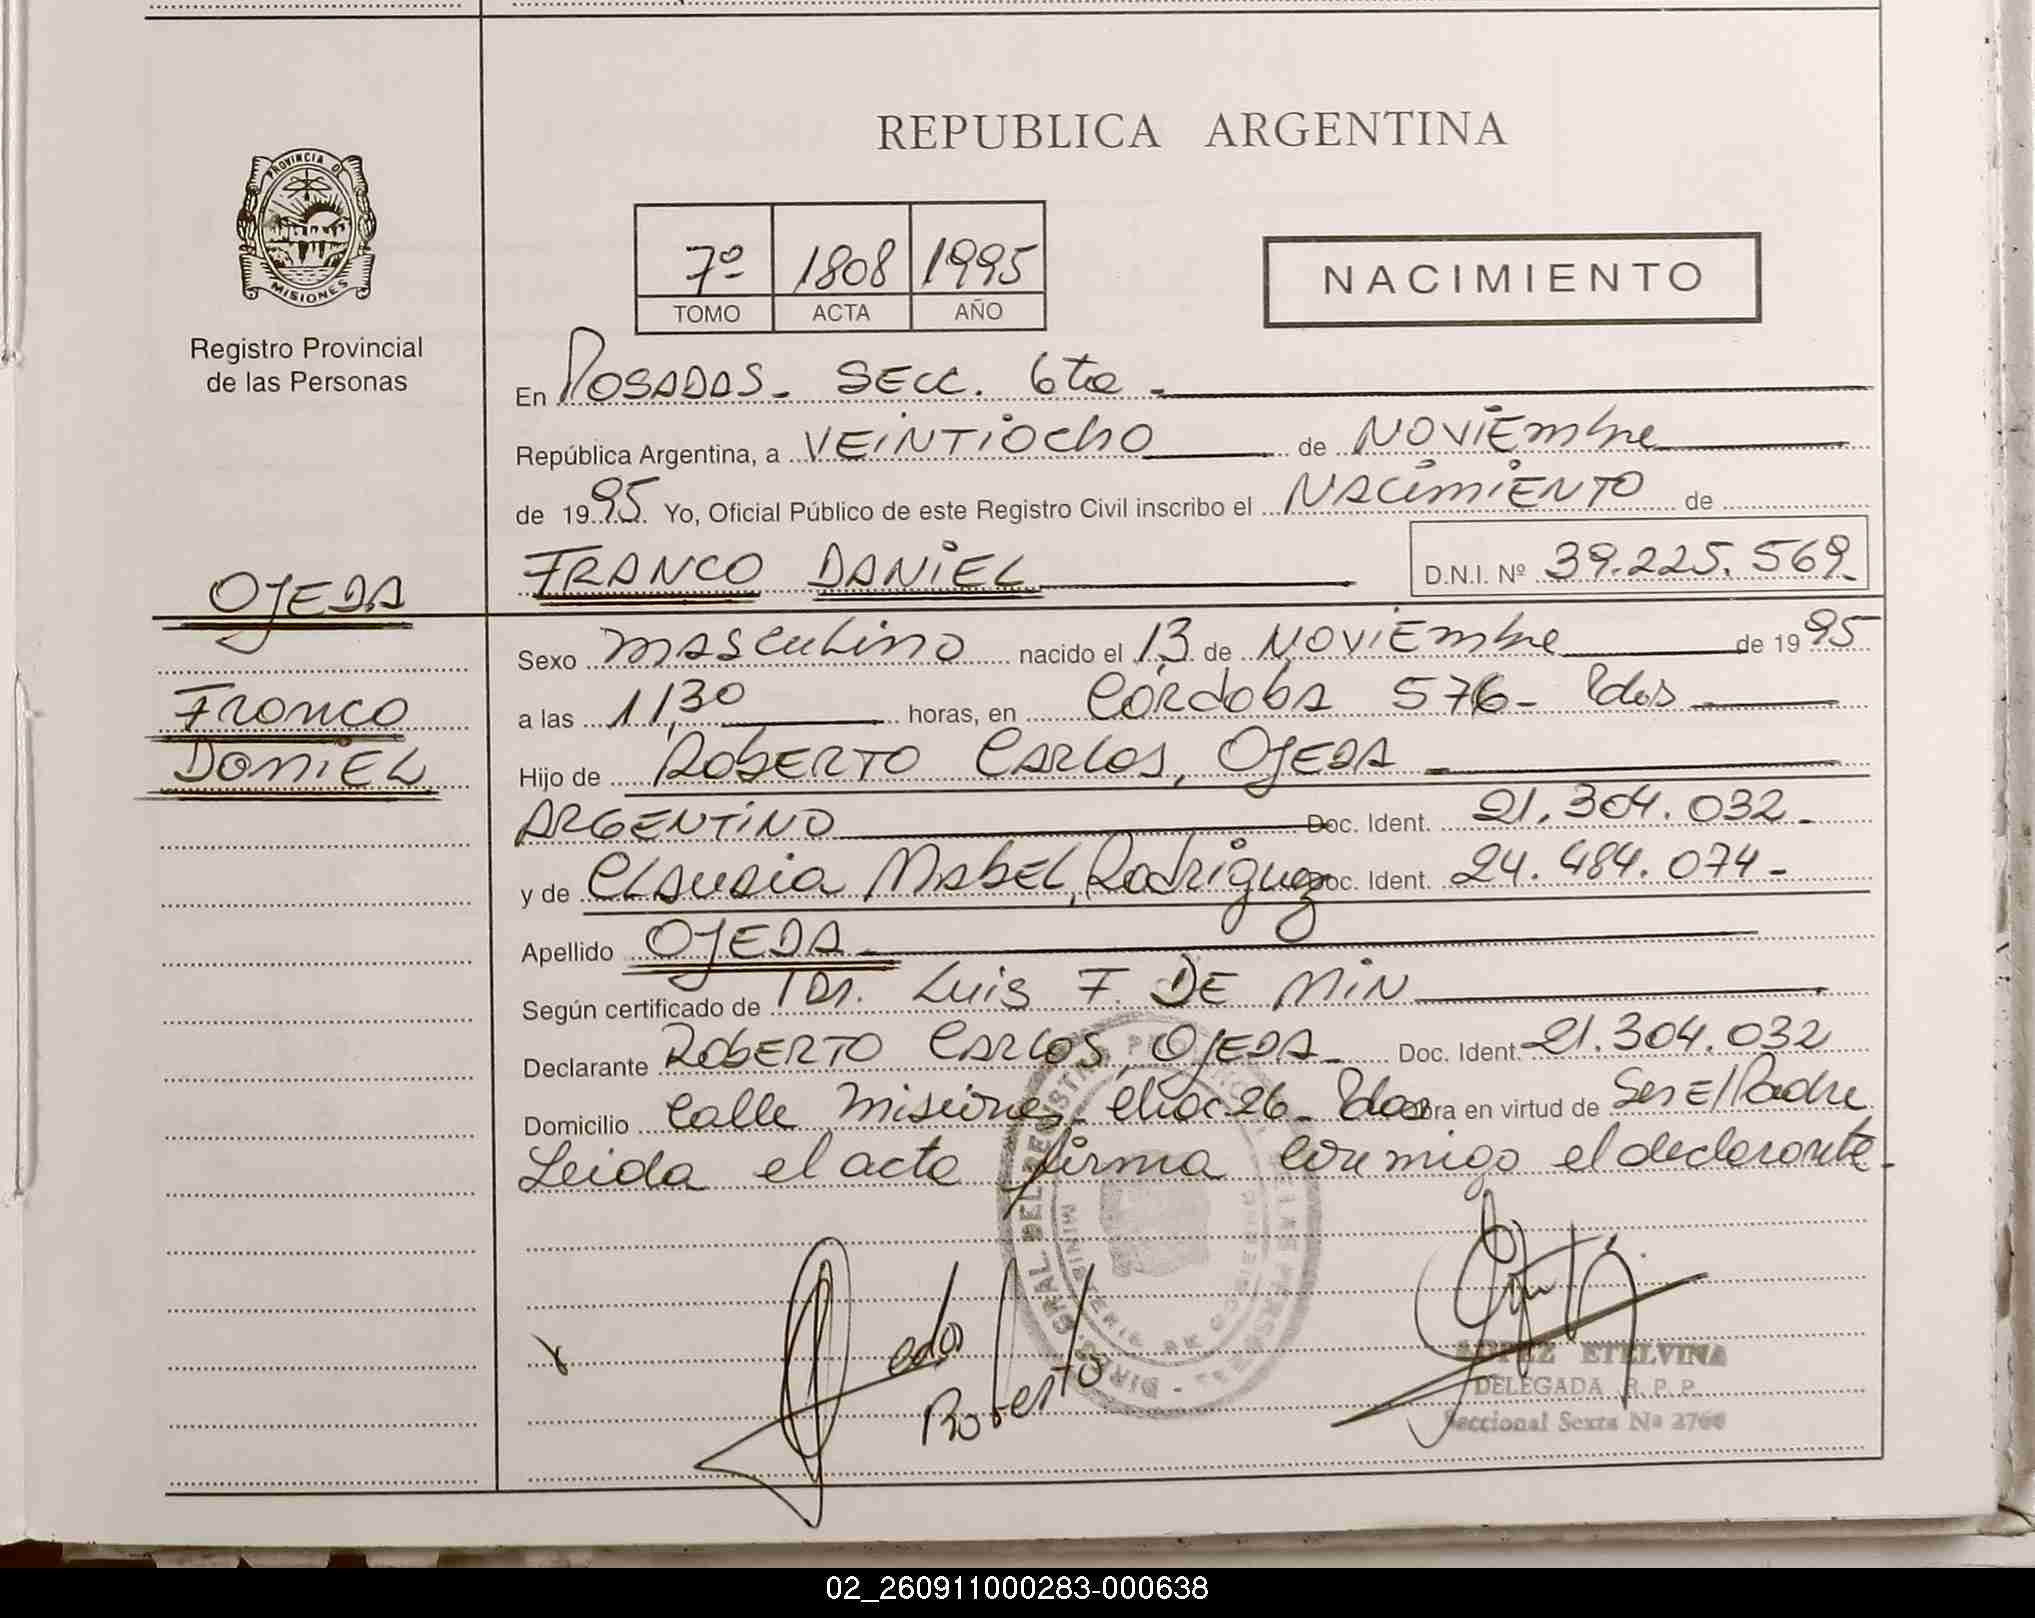 REPUBLICA ARGENTINA
PROVINCIA DE
MISIONES
Registro Provincial
de las Personas
7º 1808 1995
TOMO ACTA AÑO
NACIMIENTO
En POSADAS - SECC. 6ta -
República Argentina, a VEINTIOCHO de NOVIEmbre
de 1995 Yo, Oficial Público de este Registro Civil inscribo el NACimiENTO de
OJEDA
Franco
DaniEL
FRANCO DANIEL D.N.I. Nº 39.225.569
Sexo masculino nacido el 13 de NOVIEmbre de 1995
a las 11,30 horas, en Córdoba 576 - Pdas
Hijo de RobERTO CARLOS, OJEDA -
ARGENTINO Doc. Ident. 21.304.032 -
y de CLAUDIA MABEL, Rodriguez Doc. Ident. 24.484.074 -
Apellido OJEDA
Según certificado de Dr. Luis F. DE MIN
Declarante RobERTO CARLOS, OJEDA - Doc. Ident. 21.304.032
Domicilio Calle misiones chac 26 - Pdas obra en virtud de Ser El Padre
Leida el acta firma conmigo el declarante -
Roberto
LOPEZ ETELVINA
DELEGADA R. P. P.
Seccional Sexta Nº 2760
02_260911000283-000638